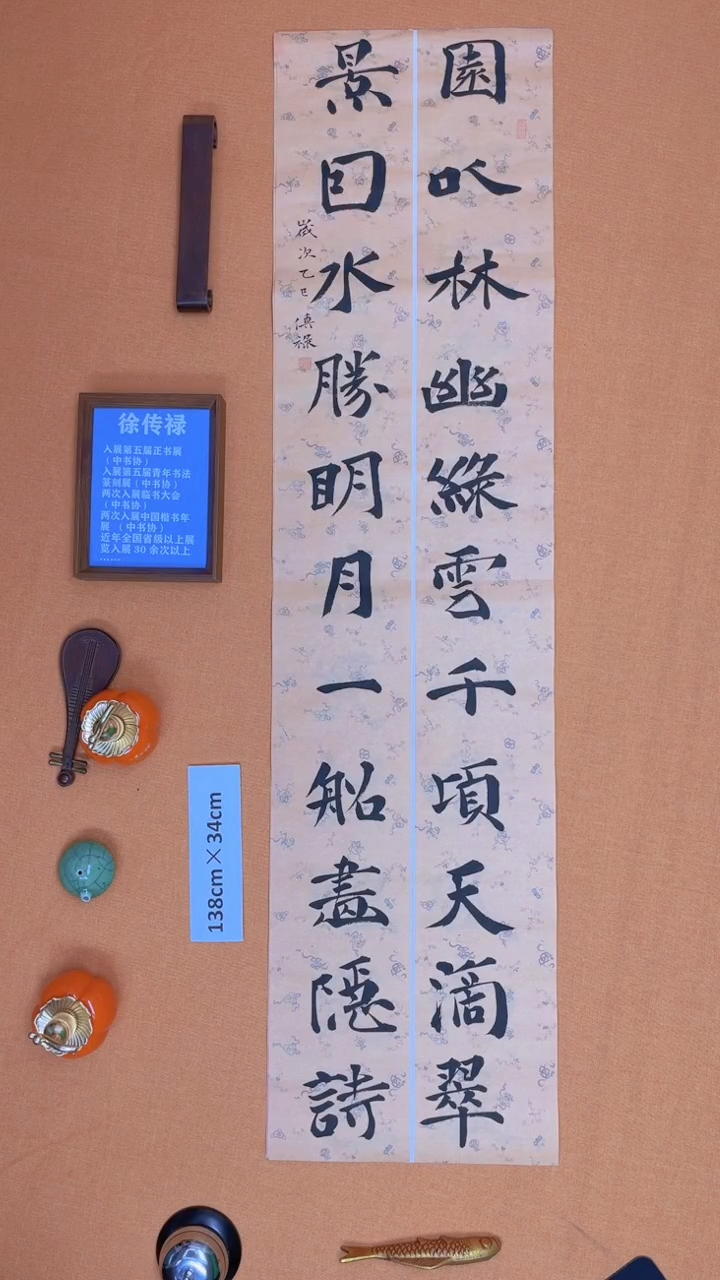 園㕥林幽綠雲千頃天滴翠
景囙水勝眀月一船畫隱詩
歲次乙巳 傳祿
徐传禄
入展第五届正书展
（中书协）
入展第五届青年书法
篆刻展（中书协）
两次入展临书大会
（中书协）
两次入展中国楷书年
展 （中书协）
近年全国省级以上展
览入展 30 余次以上
......
138cm×34cm